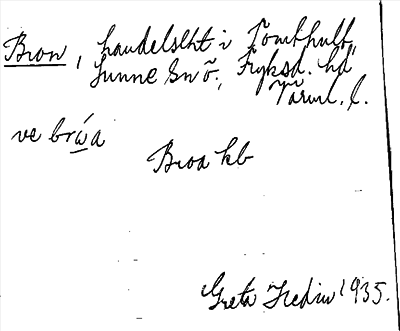 Bron, handelslht i Tomthult,
Sunne sn ö., Fryksd. hd
Värml. l.
ve brẃa
Broa kb
Greta Hedin 1935.